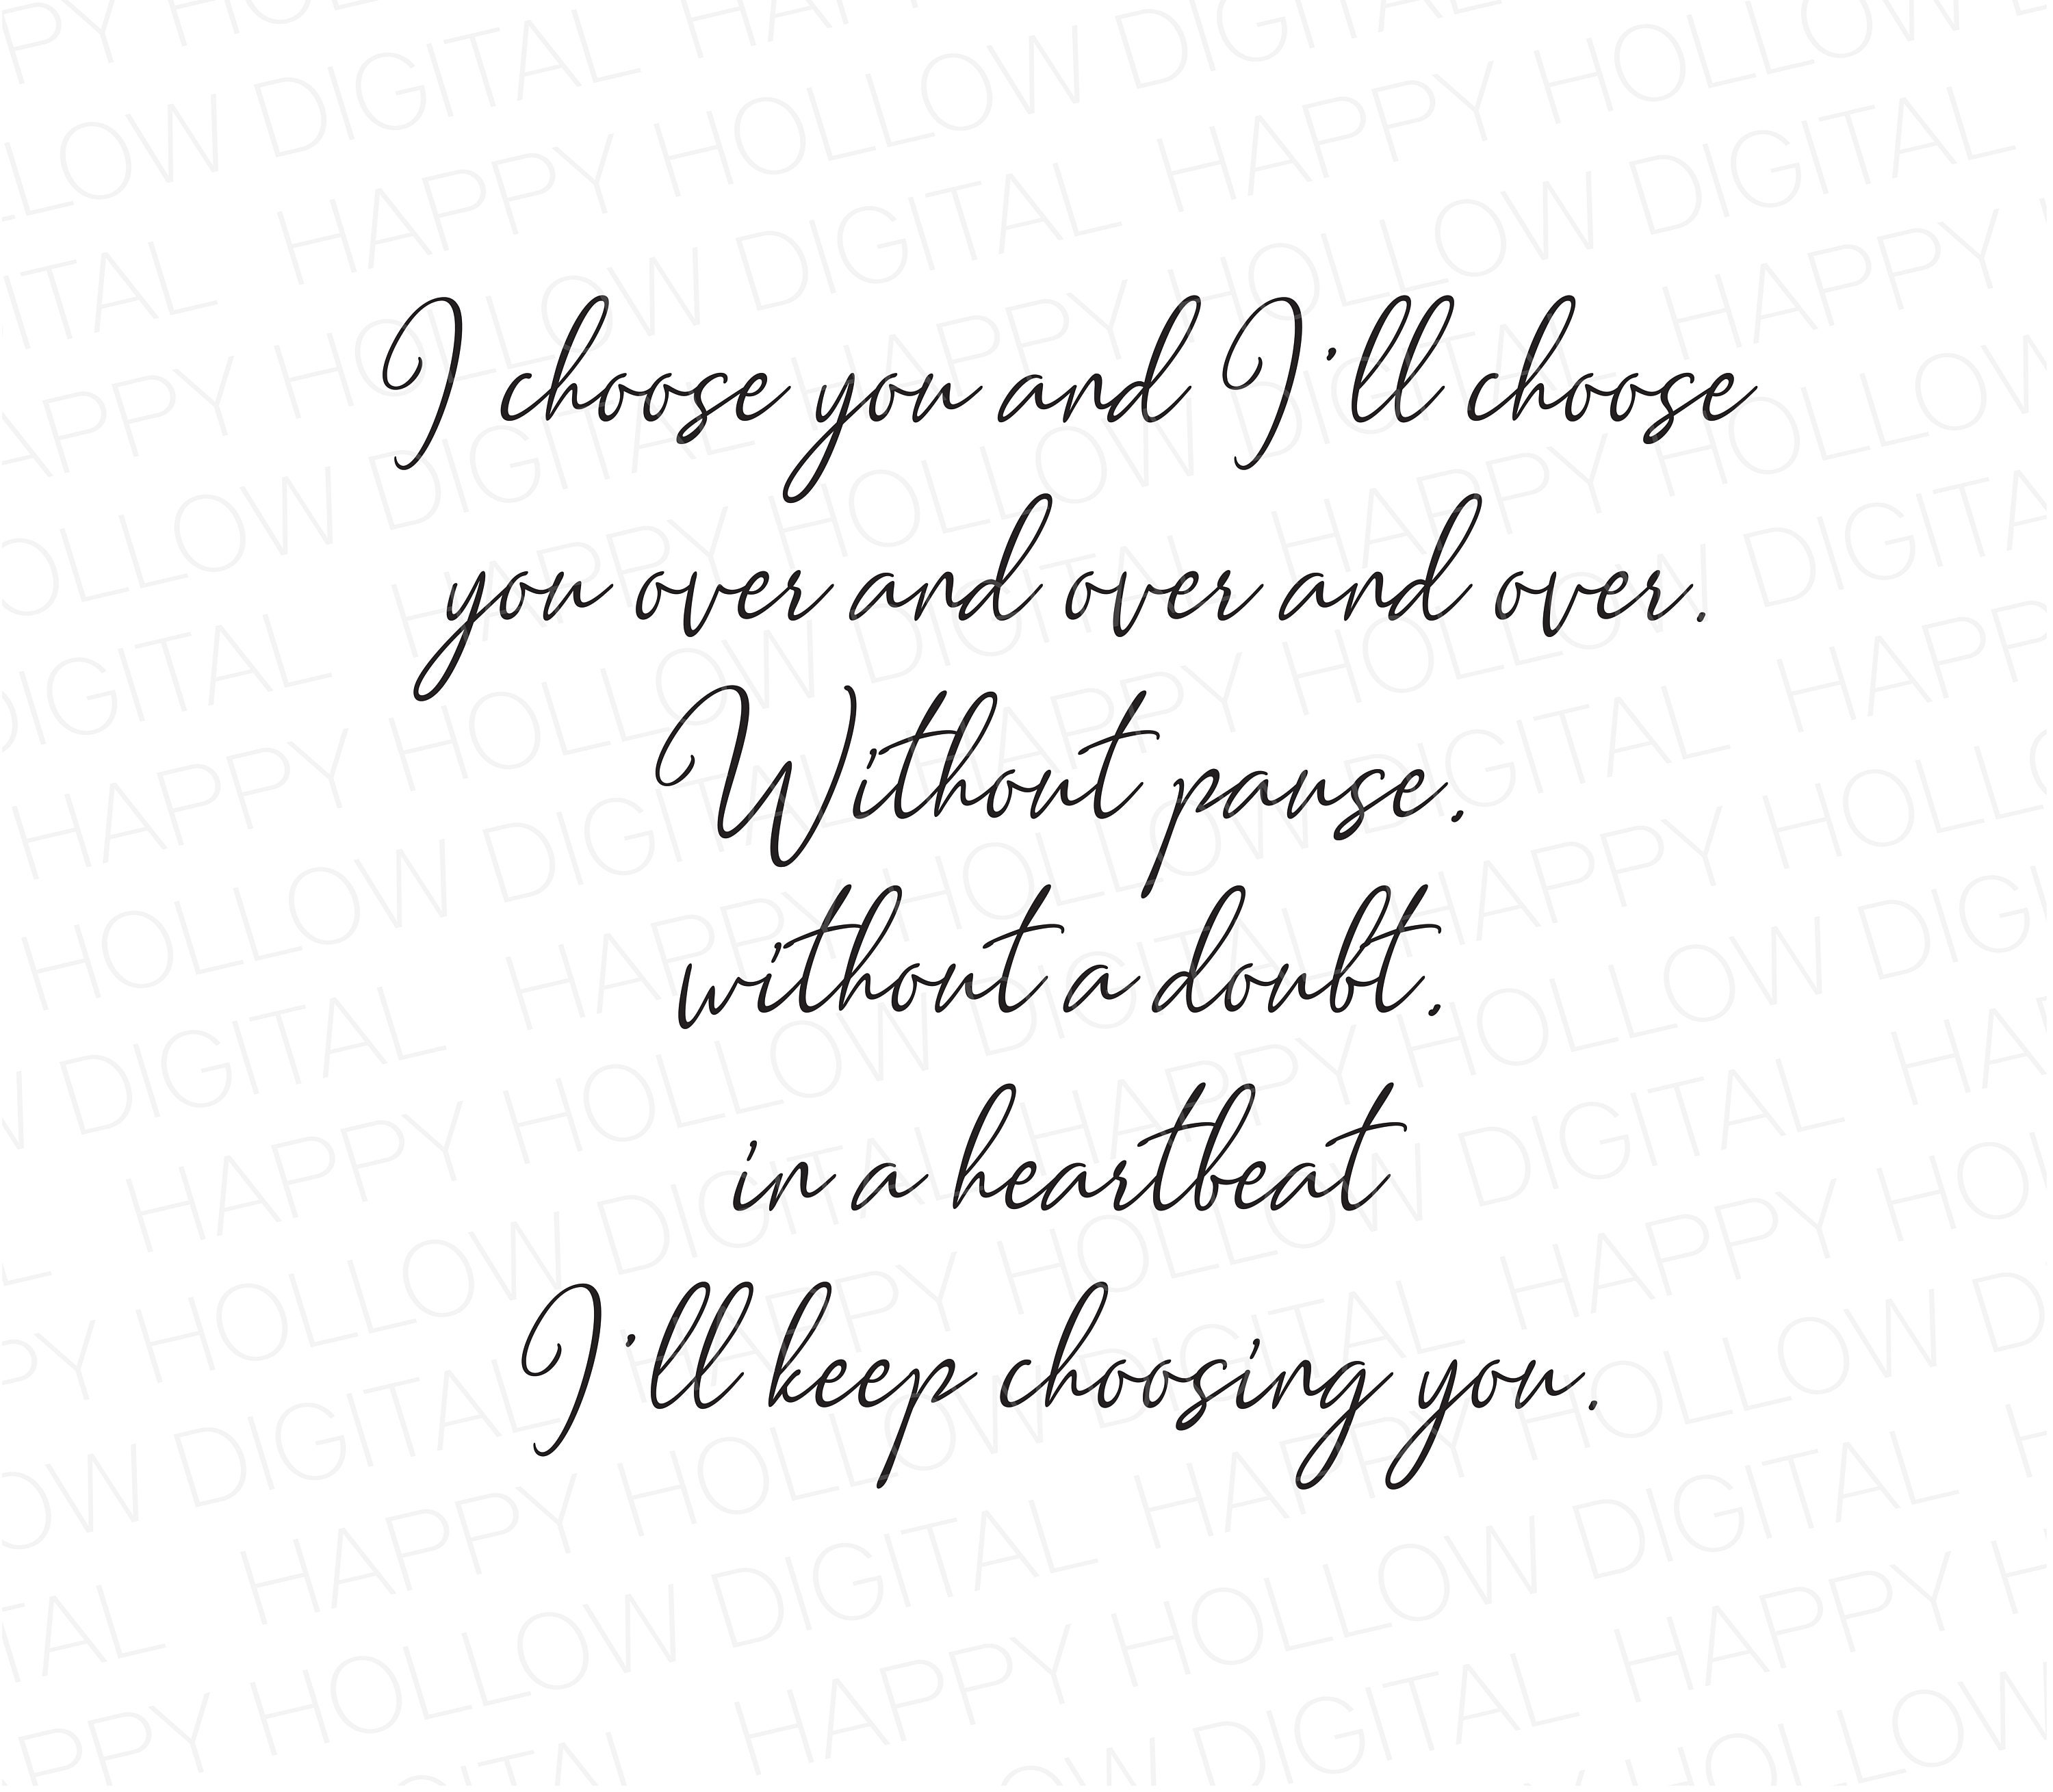 I choose you and I'll choose
you over and over and over.
Without pause.
without a doubt.
in a heartbeat
I'll keep choosing you.
HAPPY HOLLOW DIGITAL